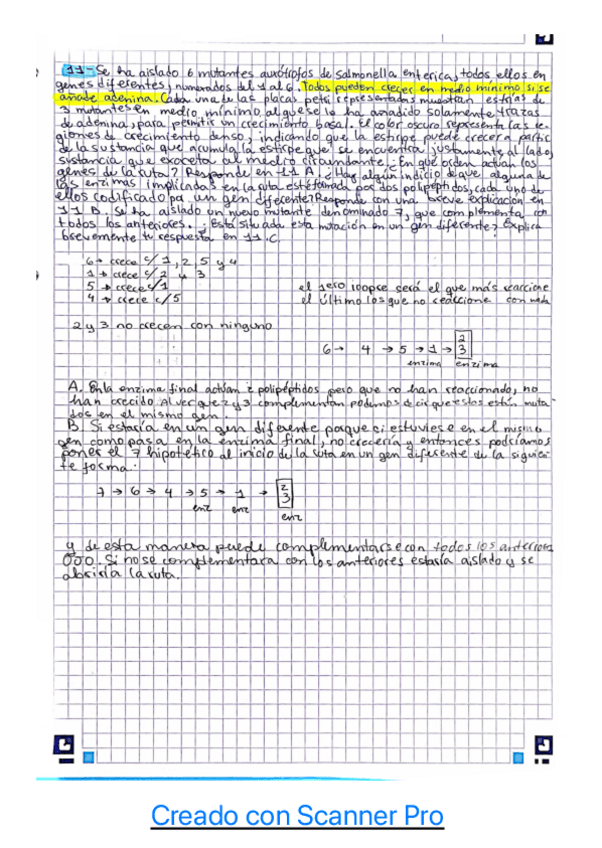 11-Se ha aislado 6 mutantes auxótrofos de Salmonella enterica, todos ellos en
genes diferentes, numerados del 1 al 6. Todos pueden crecer en medio mínimo si se
añade adenina. Cada una de las placas petri representadas muestran estrias de
3 mutantes en medio mínimo al que se le ha añadido solamente trazas
de adenina, para permitir un crecimiento basal. El color oscuro representa las re-
giones de crecimiento denso, indicando que la estirpe puede crecer a partir
de la sustancia que acumula la estirpe que se encuentra justamente al lado,
sustancia que exoceta al medio circundante. En que orden actúan los
genes de la ruta? Responde en 11 A. ¿Hay algún indicio de que alguna de
las enzimas implicadas en la ruta esté formada por dos polipéptidos, cada uno de
ellos codificado pa un gen diferente? Responde con una breve explicación en
11 B. Se ha aislado un nuevo mutante denominado 7, que complementa con
todos los anteriores. ¿Está situada esta mutación en un gen diferente? Explica
brevemente tu respuesta en 11.C.
6→ crece c/ 1, 2, 5 y 4
1 → crece c/2 y 3
5 → crece c/1
4 → crece c/5
el 1ero siempre será el que más reaccione
el último los que no reaccione con nada
2 y 3 no crecen con ninguno
6 → 4 → 5 → 1 → 2 3
enzima enzima
A. En la enzima final actúan 2 polipéptidos pero que no han reaccionado, no
han crecido. Al ver que 2 y 3 complementan podemos decir que estos están muta-
dos en el mismo gen.
B. Si estaría en un gen diferente porque si estuviese en el mismo
gen como pasa en la enzima final, no crecería y entonces podríamos
poner el 7 hipotético al inicio de la ruta en un gen diferente de la siguien-
te forma.
7 → 6 → 4 → 5 → 1 → 2 3
enz enz enz
y de esta manera puede complementarse con todos los anteriores
Si no se complementara con los anteriores estaría aislado y se
abriría la ruta.
Creado con Scanner Pro